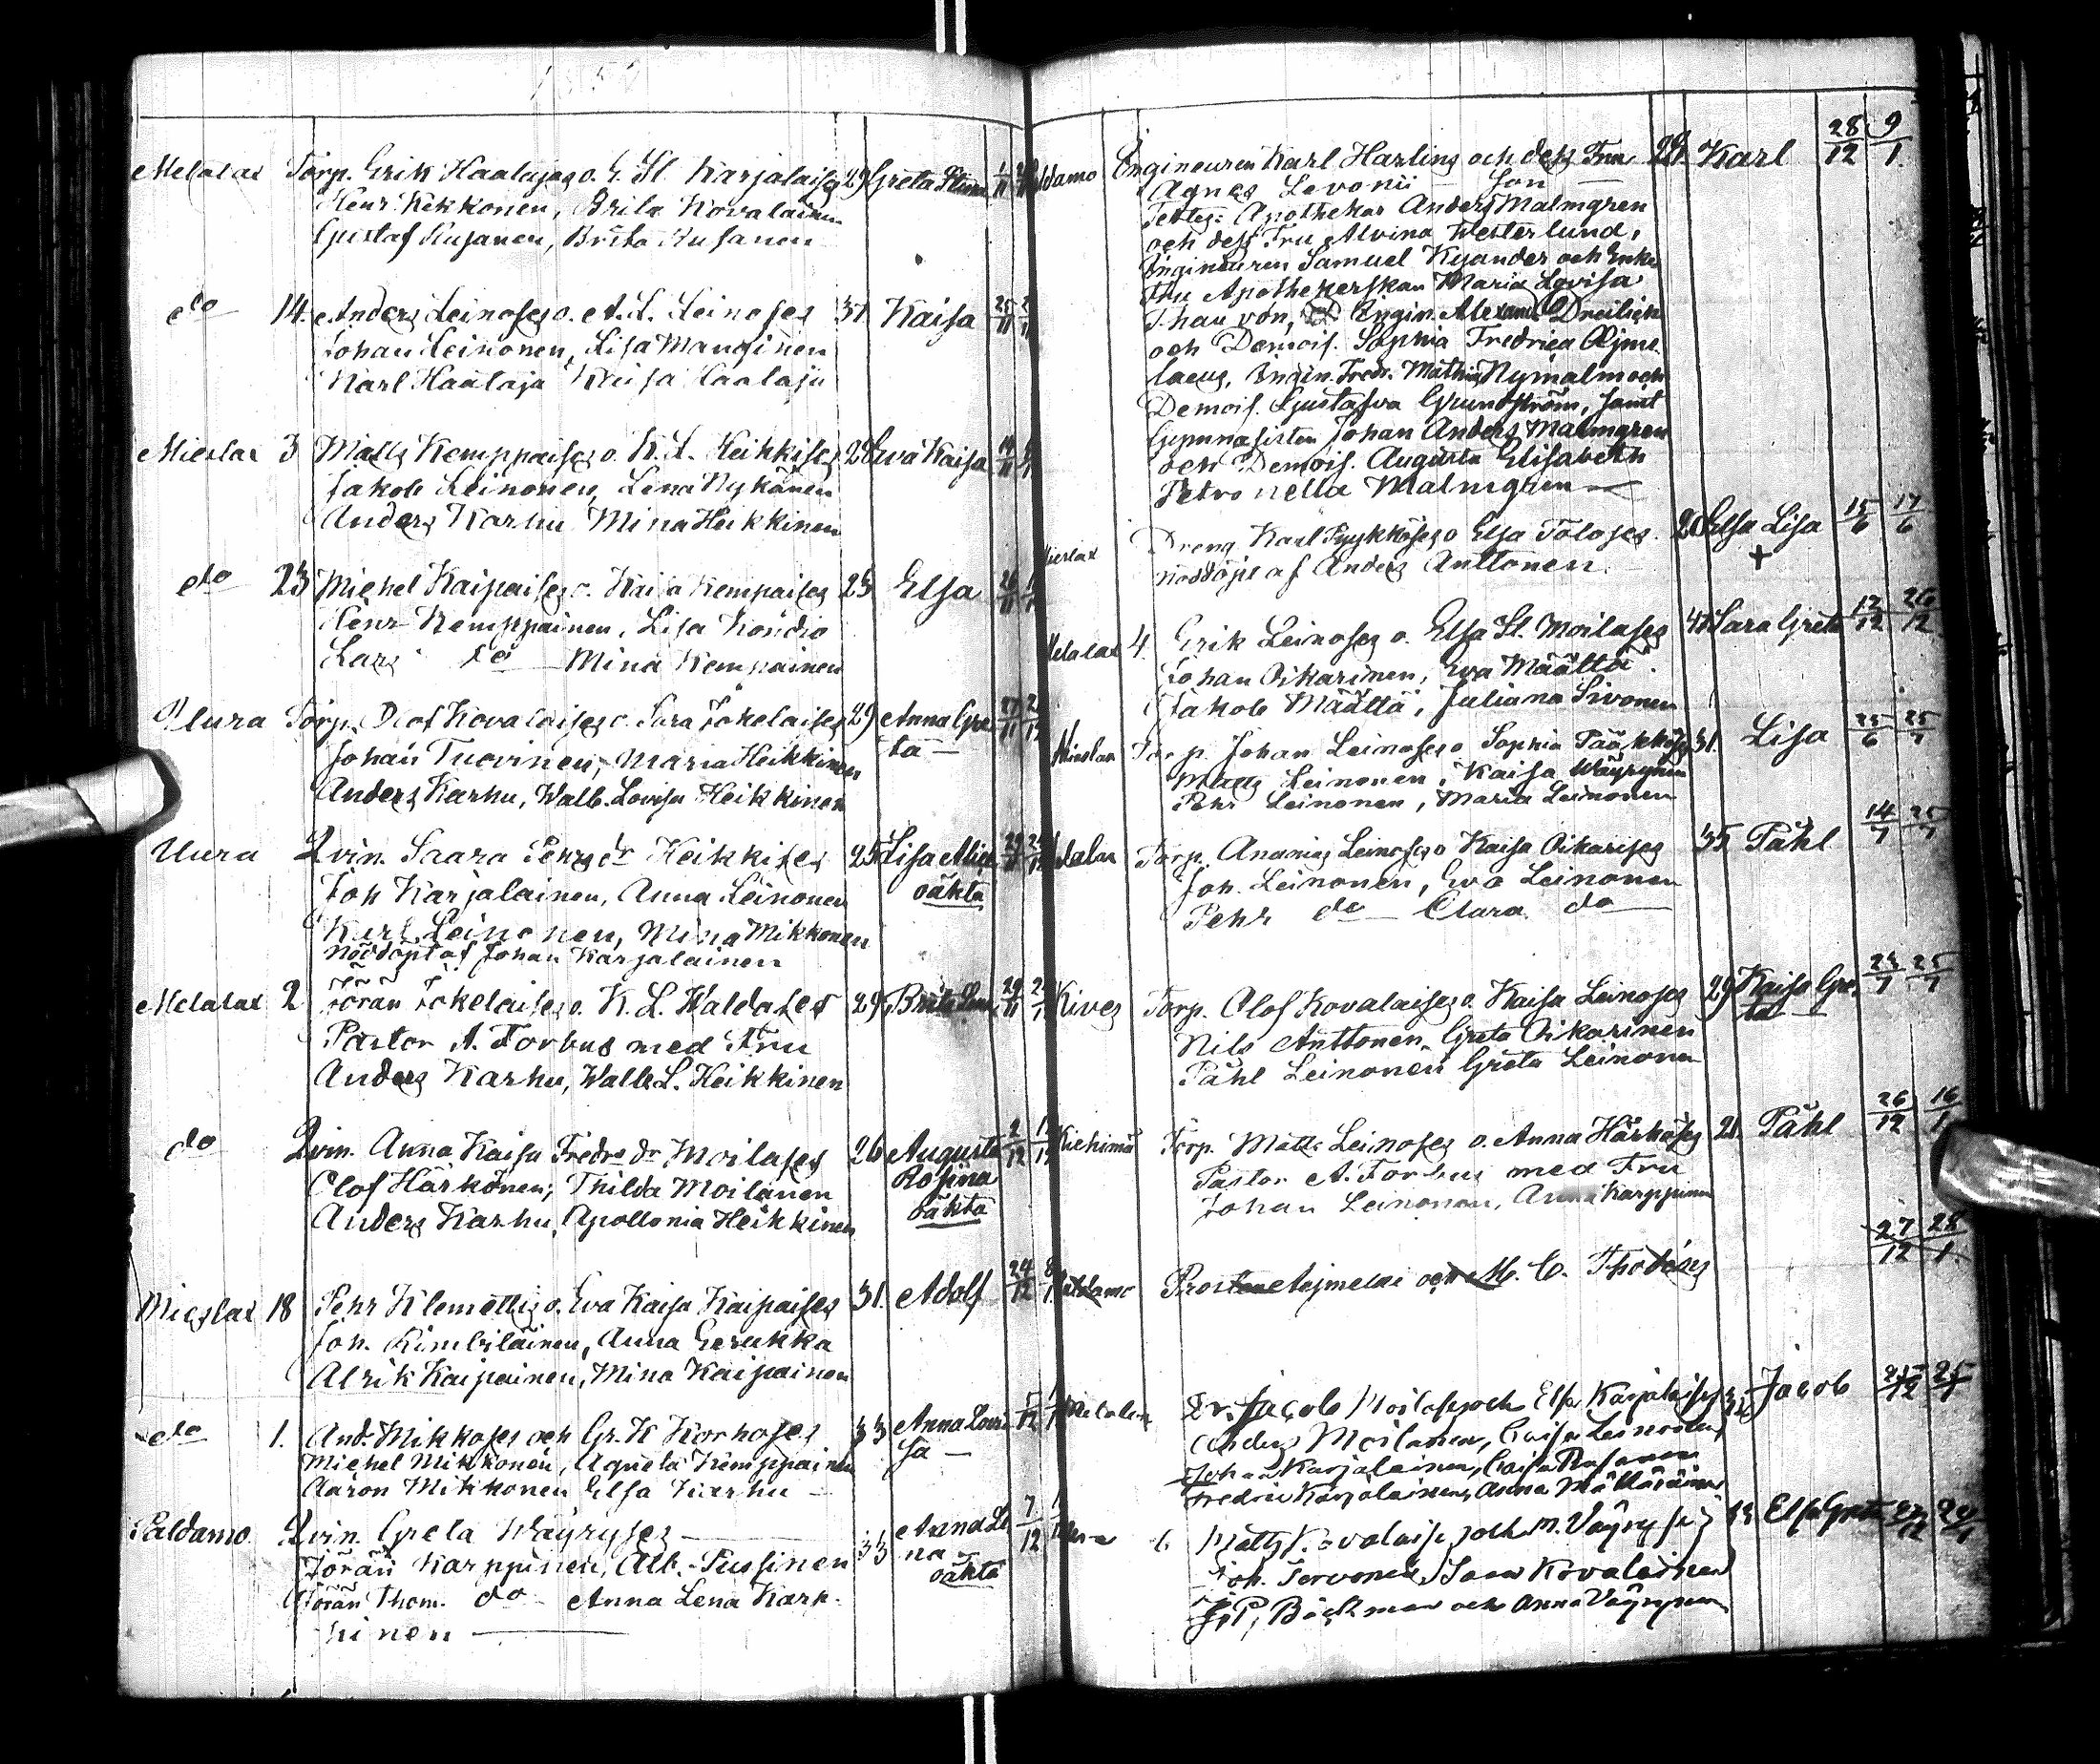 Melalax Torp. Erik Haalajas o. E. Sl. Karjalaises 29 Greta Stina
Henr. Kekkonen, Brita Kovalainen
Gustaf Rusanen, Brita Rusanen
do 14. Anders Leinoses o. A. L. Leinoses 31 Kaisa 25/11
Johan Leinonen, Lisa Manninen
Karl Haataja Kaisa Haataja
Mieslax 3 Matts Kemppaises o. K. L. Heikkises 28 Eva Kaisa
Jakob Leinonen, Lena Nykänen
Anders Karhu Mina Heikkinen
do 23 Michel Kaipaises o. Kaisa Kempaises 25 Elsa 26/11
Henr Kemppainen, Lisa
Lars do — Mina Kempainen
Uura Torp. Olof Kovalaises o. Sara Jokelaises 29 Anna Gre- 27/11
Johan Tuovinen, Maria Heikkinen ta —
Anders Karhu, Walb. Lovisa Heikkinen
Uura Qvin. Saara Pehrs dr Heikkises 25 Lisa
Joh Karjalainen, Anna Leinonen oäkta
Karl Leinonen, Mina Mikkonen
Nöddöpt af Johan Karjalainen
Melalax 2 Jöran Jokelaises o. K. L. Waldases 29 Brita 29/11
Pastor A. Forbus med Fru
Anders Karhu, Walb L. Heikkinen
do Qvin. Anna Kaisa Fredrs dr Moilases 26 Augusta 2/12
Olof Härkönen, Thilda Moilanen Rosina
Anders Karhu, Apollonia Heikkinen oäkta
Mieslax 18 Pehr Klemettis o. Eva Kaisa Kaipaises 31. Adolf 24/12 8/1
Joh. Kimbiläinen, Anna Gerukka
Alrik Kaipainen, Mina Kaipainen
do 1. And. Mikkoses och Gr. K Korhoses 33 Anna Lovi-
Michel Mikkonen, Agneta Kemppainen sa —
Aaron Mikkonen Elsa Karhu —
Paldamo Qvin. Greta Wäyryses — 33 Anna Le- 7/12
Jöran Karppinen, Alb. Pussinen na —
Jöran Thom. do — Anna Lena Karp- oäkta
pinen —
Engineuren Karl Harling och dess Fru 29. Karl 28/12 9/1
Agnes Levonii — Son —
Testes: Apothekar Anders Malmgren
och dess Fru Alvina Westerlund,
Engineuren Samuel Kyander och Enke
Fru Apothekerskan Maria Lovisa
Thau von, Engin. Alexand. Dreilick
och Demois. Sophia Fredrica Æjme-
laeus, Engin. Fredr. Mathias Nymalm och
Demois. Gustafva Grundström, samt
Gymnasisten Johan Anders Malmgren
och Demois. Augusta Elisabeth
Petronella Malmgren —
Mieslax Dreng Karl Pyykköses o Elsa Toloses. 20 Elsa Lisa 15/6 17/6
nöddöpt af Anders Anttonen. +
Melalax 4. Erik Leinoses o. Elsa Sl. Moilases 41 Sara Greta 12/12 26/12
Johan Oikarinen, Eva Määttä.
Jakob Määttä, Juliana Sivonen
Mieslax Torp. Johan Leinoses o Sophia Pääkköses 31. Lisa 23/6 25/7
Matts Leinonen, Kaisa Wäyrynen
Pehr Leinonen, Maria Leinonen
Melalax Torp. Ananias Leinoses o Kaisa Oikarises 35 Påhl 14/7 25/7
Joh. Leinonen, Eva Leinonen
Pehr do — Clara do —
Kives Torp. Olof Kovalaises o. Kaisa Leinoses 29 Kaisa Gre- 23/7 25/7
Nils Anttonen, Greta Oikarinen ta —
Påhl Leinonen Greta Leinonen
Kiehimä Torp. Matts Leinoses o. Anna Härköses 21. Påhl 26/12 16/1
Pastor A. Forbus med Fru
Johan Leinonen, Anna Karppinen
27/12 28/1
Paldamo Prosten Aejmelai och M. C. Thodéns
Melalax Dr. Jacob Moilases och Elsa Karjalaises Jacob
Anders Moilanen, Caisa Leinonen
Johan Karjalainen, Caisa Rusanen
Fredric Karjalainen, Anna Määttäinen
6 Matts Kovalaises och M. Väyryses Elsa Greta
Joh. Tervonen, Sara Kovalainen
J. P. Bäckman och Anna Väyrynen